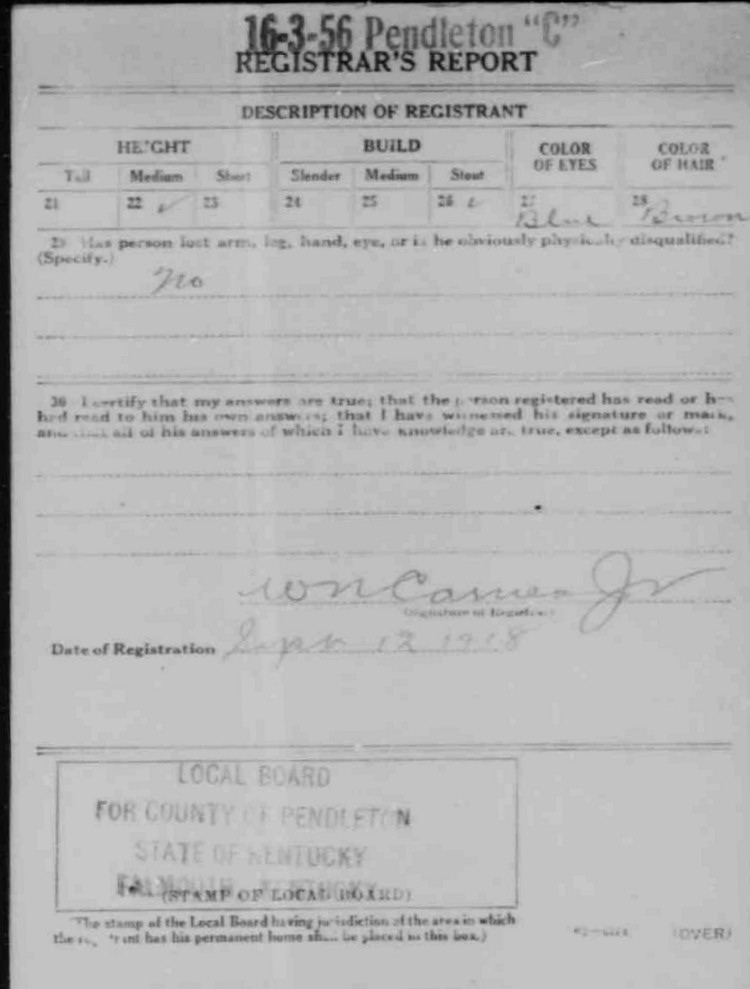 16-3-56 Pendleton "C"
REGISTRAR'S REPORT
DESCRIPTION OF REGISTRANT
HEIGHT BUILD COLOR OF EYES COLOR OF HAIR
Tall Medium Short Slender Medium Stout
21 22 ✓ 23 24 25 26 ✓ 27 Blue 28 Brown
29 Has person lost arm, leg, hand, eye, or is he obviously physically disqualified?
(Specify.)
No
30 I certify that my answers are true; that the person registered has read or has
had read to him his own answers; that I have witnessed his signature or mark,
and that all of his answers of which I have knowledge are true, except as follows:
W N Jr
(Signature of Registrar)
Date of Registration Sept 12 1918
LOCAL BOARD
FOR COUNTY OF PENDLETON
STATE OF KENTUCKY
FALMOUTH, KENTUCKY
(STAMP OF LOCAL BOARD)
(The stamp of the Local Board having jurisdiction of the area in which
the registrant has his permanent home shall be placed in this box.)
(OVER)